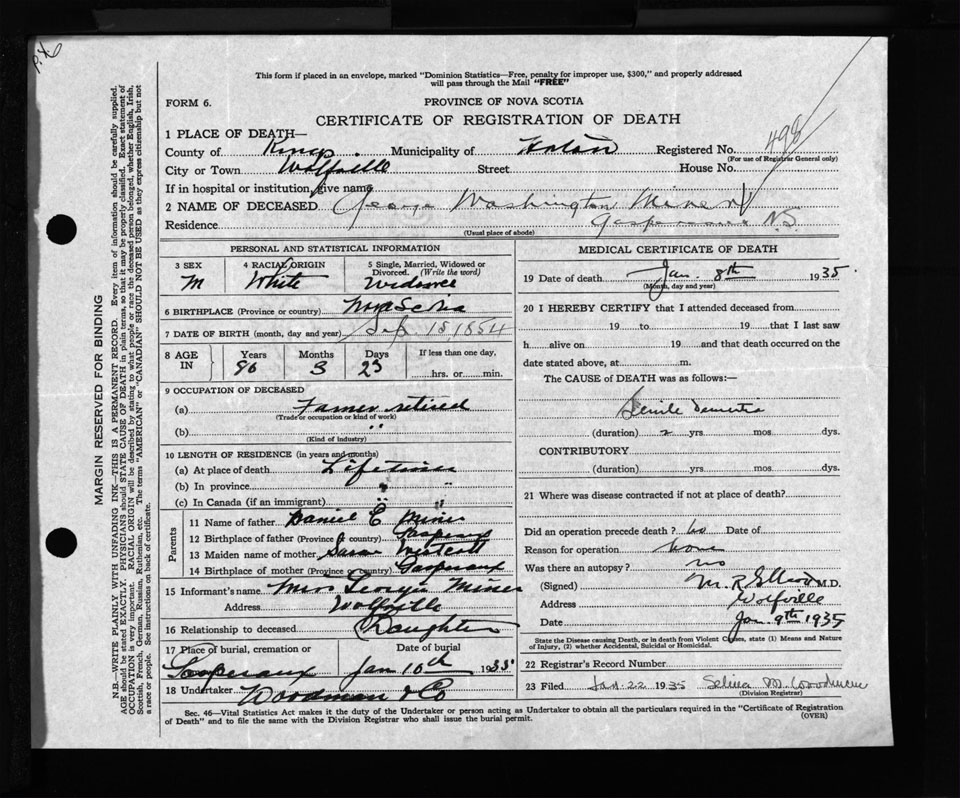 P. X. 6
This form if placed in an envelope, marked "Dominion Statistics—Free, penalty for improper use, $300," and properly addressed
will pass through the Mail "FREE"
FORM 6.
PROVINCE OF NOVA SCOTIA
CERTIFICATE OF REGISTRATION OF DEATH
1 PLACE OF DEATH—
County of Kings Municipality of Registered No. 498
(For use of Registrar General only)
City or Town Wolfville Street House No.
If in hospital or institution, give name
2 NAME OF DECEASED George Washington Miner
Residence Gaspereaux N.S
(Usual place of abode)
PERSONAL AND STATISTICAL INFORMATION
3 SEX 4 RACIAL ORIGIN 5 Single, Married, Widowed or Divorced. (Write the word)
M White Widower
6 BIRTHPLACE (Province or country) Nova Scotia
7 DATE OF BIRTH (month, day and year) Sep 15 1854
8 AGE IN Years Months Days If less than one day,
80 3 23 hrs. or min.
9 OCCUPATION OF DECEASED
(a) Farmer retired
(Trade or occupation or kind of work)
(b) "
(Kind of industry)
10 LENGTH OF RESIDENCE (in years and months)
(a) At place of death Lifetime
(b) In province "
(c) In Canada (if an immigrant) " "
Parents
11 Name of father Daniel C Miner
12 Birthplace of father (Province or country) Gaspereaux
13 Maiden name of mother Sarah Westcott
14 Birthplace of mother (Province or country) Gaspereaux
15 Informant's name Miss Georgie Miner
Address Wolfville
16 Relationship to deceased Daughter
17 Place of burial, cremation or Date of burial
Gaspereaux Jan 10th 1935
18 Undertaker Woodman & Co
MEDICAL CERTIFICATE OF DEATH
19 Date of death Jan. 8th 1935.
(Month, day and year)
20 I HEREBY CERTIFY that I attended deceased from
19 to 19 that I last saw
h alive on 19 and that death occurred on the
date stated above, at m.
The CAUSE of DEATH was as follows:—
Senile Dementia
(duration) 2 yrs mos dys.
CONTRIBUTORY
(duration) yrs mos dys.
21 Where was disease contracted if not at place of death?
Did an operation precede death? no Date of
Reason for operation none
Was there an autopsy? no
(Signed) M. R. Elliott M.D.
Address Wolfville
Date Jan. 9th 1935
State the Disease causing Death, or in death from Violent Causes, state (1) Means and Nature
of Injury, (2) whether Accidental, Suicidal or Homicidal.
22 Registrar's Record Number
23 Filed Jan 22 1935 Selina M. Woodman
(Division Registrar)
Sec. 46—Vital Statistics Act makes it the duty of the Undertaker or person acting as Undertaker to obtain all the particulars required in the "Certificate of Registration
of Death" and to file the same with the Division Registrar who shall issue the burial permit. (OVER)
MARGIN RESERVED FOR BINDING
N.B.—WRITE PLAINLY WITH UNFADING INK—THIS IS A PERMANENT RECORD. Every item of information should be carefully supplied.
AGE should be stated EXACTLY. PHYSICIANS should STATE CAUSE OF DEATH in plain terms, so that it may be properly classified. Exact statement of
OCCUPATION is very important. RACIAL ORIGIN will be described by stating to what people or race the deceased person belonged, whether English, Irish,
Scottish, French, German, Russian, Ruthenian, etc. The terms "AMERICAN" or "CANADIAN" SHOULD NOT BE USED as they express citizenship but not
a race or people. See instructions on back of certificate.